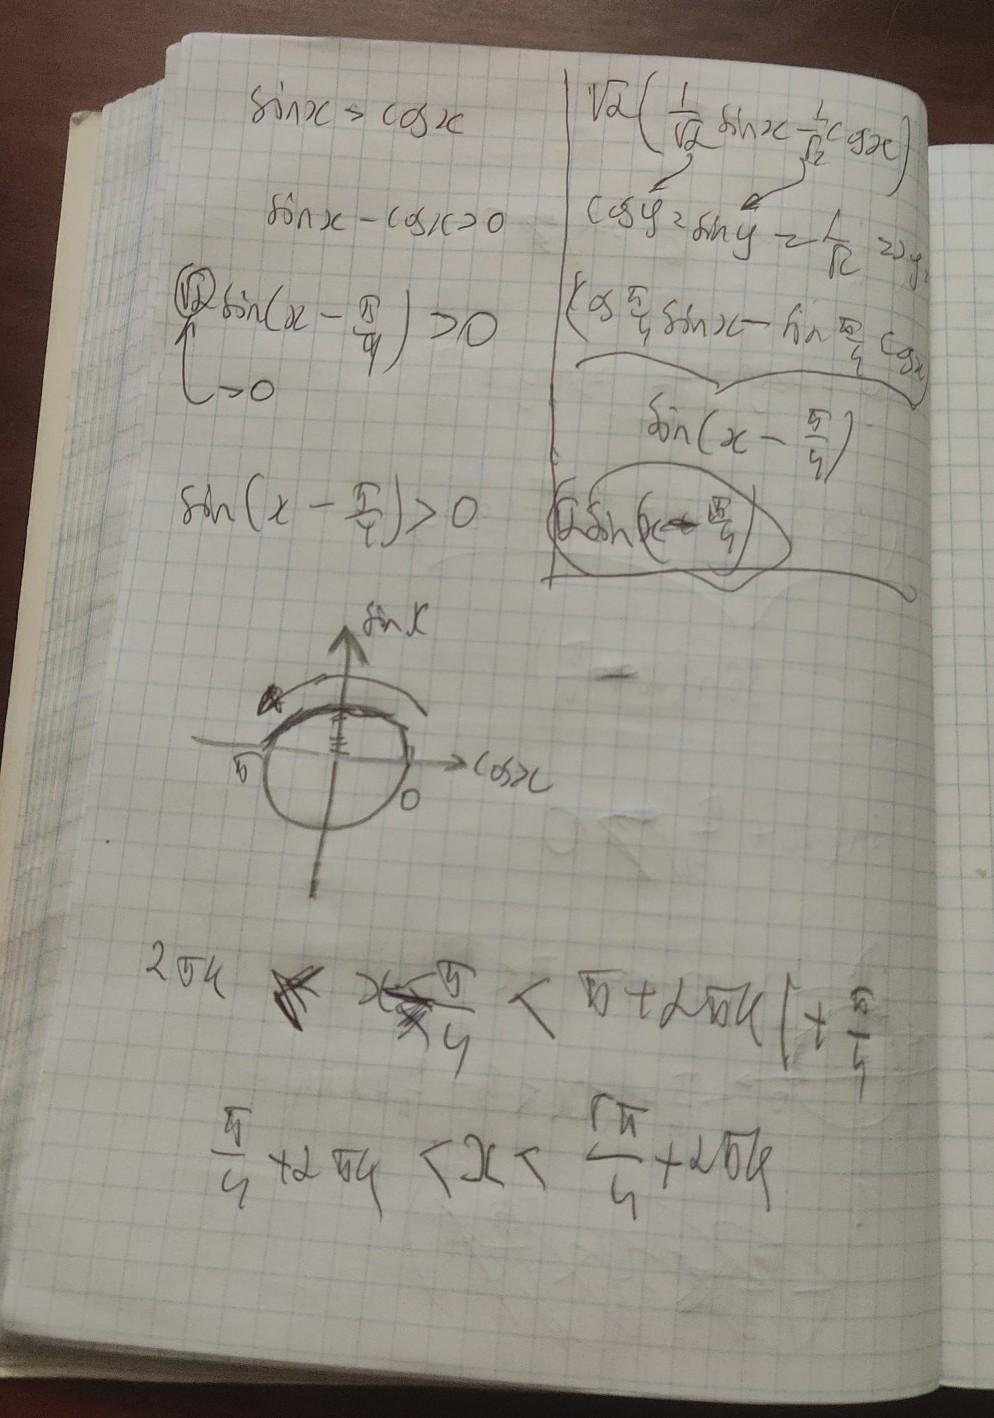 sinx > cosx
sinx - cosx > 0
√2 sin(x - π/4) > 0
> 0
sin(x - π/4) > 0
√2(1/√2 sinx - 1/√2 cosx)
cosy = siny = 1/√2 => y =
cos π/4 sinx - sin π/4 cosx
sin(x - π/4)
√2 sin(x - π/4)
sinx
π
0
cosx
2πk < x - π/4 < π + 2πk | + π/4
π/4 + 2πk < x < 5π/4 + 2πk